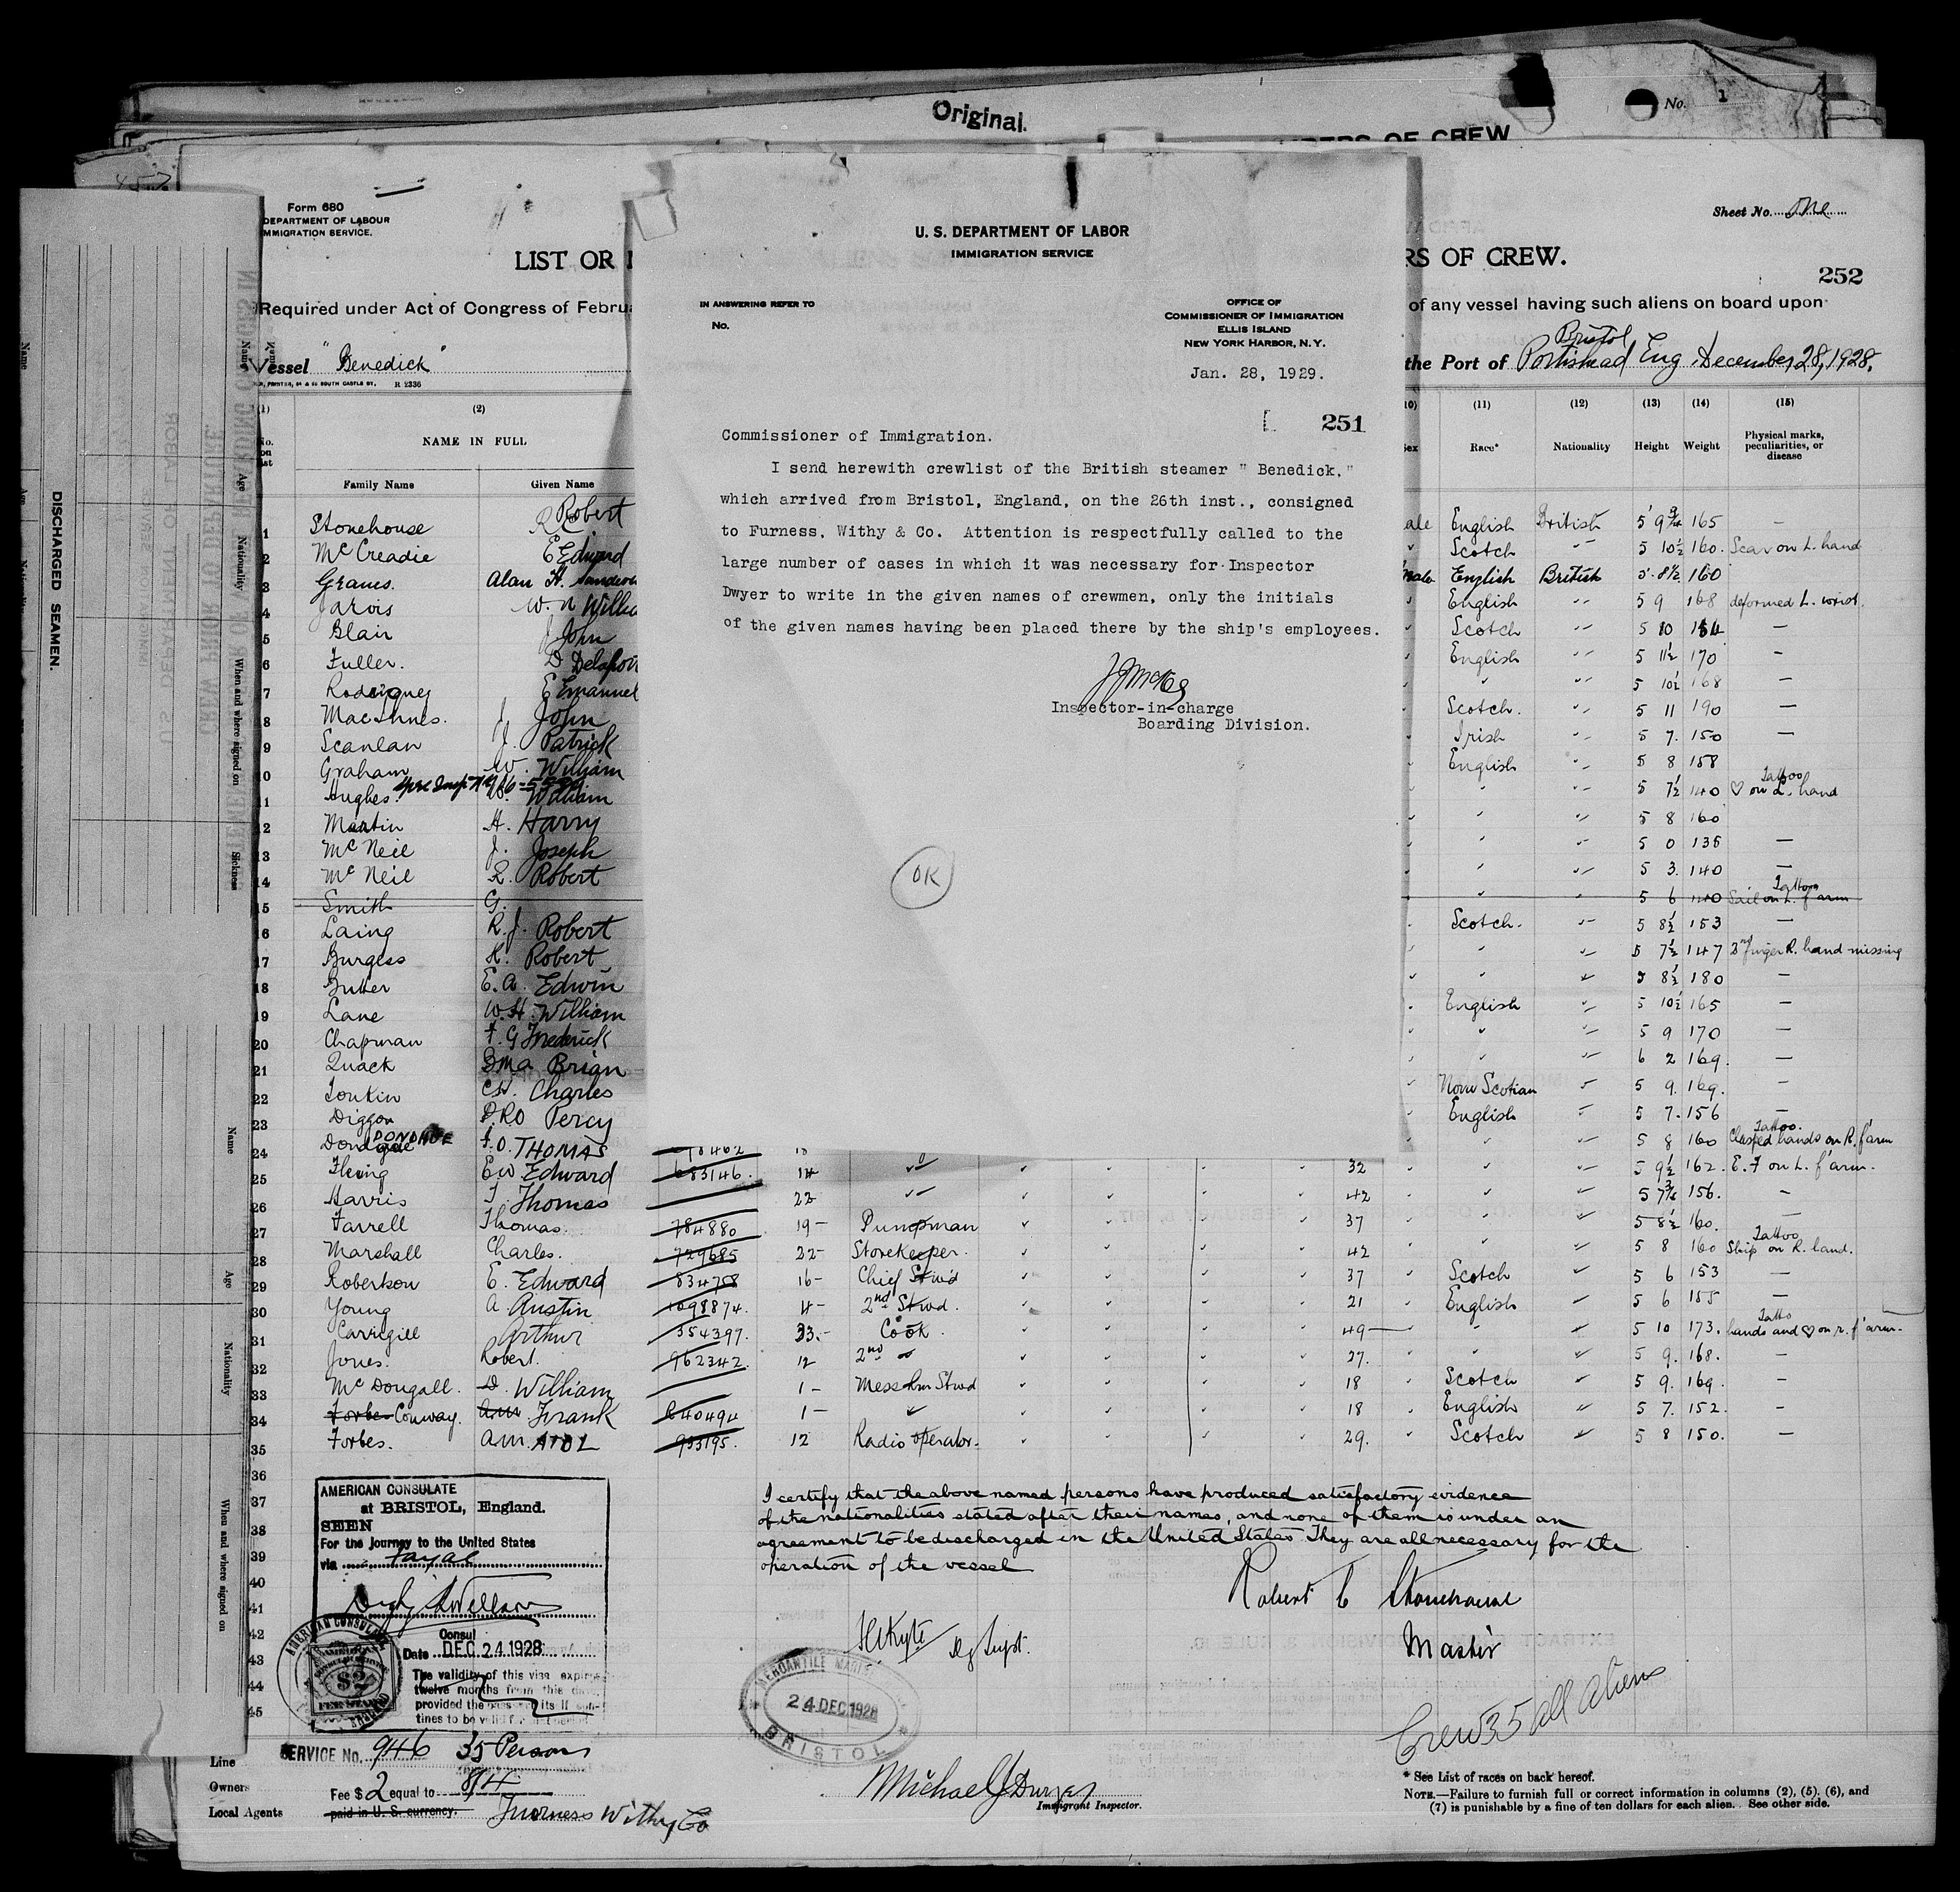 Original.
No. 1
Form 680
DEPARTMENT OF LABOUR
IMMIGRATION SERVICE.
Sheet No. One
LIST OR
RS OF CREW.
252
Required under Act of Congress of Februa
of any vessel having such aliens on board upon
Vessel "Benedick"
R 2336
the Port of Bristol Portishead Eng. December 28, 1928.
U. S. DEPARTMENT OF LABOR
IMMIGRATION SERVICE
IN ANSWERING REFER TO
No.
OFFICE OF
COMMISSIONER OF IMMIGRATION
ELLIS ISLAND
NEW YORK HARBOR, N. Y.
Jan. 28, 1929.
251
Commissioner of Immigration.
I send herewith crewlist of the British steamer " Benedick,"
which arrived from Bristol, England, on the 26th inst., consigned
to Furness, Withy & Co. Attention is respectfully called to the
large number of cases in which it was necessary for Inspector
Dwyer to write in the given names of crewmen, only the initials
of the given names having been placed there by the ship's employees.
Inspector-in-charge
Boarding Division.
OK
(2) (11) (12) (13) (14) (15)
NAME IN FULL
Family Name Given Name
Race* Nationality Height Weight Physical marks, peculiarities, or disease
1 Stonehouse R Robert English British 5' 9 3/4 165 —
2 McCreadie E Edward Scotch " 5 10½ 160. Scar on L. hand
3 Graves. Alan H. male English British 5' 8½ 160
4 Jarvis W. n English " 5 9 168 deformed L. wrist.
5 Blair J John Scotch " 5 10 154 —
6 Fuller. D English " 5 11½ 170 —
7 Rodrigues E Emanuel " " 5 10½ 168 —
8 MacInnes. J John Scotch. " 5 11 190 —
9 Scanlan J. Patrick Irish " 5 7. 150 —
10 Graham W. William English " 5 8 158
11 Hughes. W. William " " 5 7½ 140 Tattoo ♡ on L. hand
12 Martin H. Harry " " 5 8 160
13 McNeil J. Joseph " " 5 0 135 —
14 McNeil R. Robert " " 5 3. 140 —
15 Smith G. " " 5 6 140 Tattoo Sail on L. f'arm
16 Laing R. J. Robert Scotch. " 5 8½ 153 —
17 Burgess H. Robert " " 5 7½ 147 finger R. hand missing
18 Butter E. A. Edwin " " 5 8½ 180 —
19 Lane W. H. William English " 5 10½ 165 —
20 Chapman F. G Frederick " " 5 9 170 —
21 Quack B Ma Brian " " 6 2 169. —
22 Tonkin C W. Charles Nova Scotian " 5 9. 169. —
23 Diggon P. R O Percy English " 5 7. 156 —
24 DONOHUE J. O. THOMAS " " 5 8 160 Tattoo. Clasped hands on R. f'arm
25 E W. Edward 683146. 14 " 32 " " 5 9½ 162. E. F on L. f'arm.
26 Harris T. Thomas 22 " 42 " " 156. —
27 Farrell Thomas. 784880 19 — Pumpman 37 " " 5 8½ 160. —
28 Marshall Charles. 729685 22 - Storekeeper. 42 " " 5 8 160 Tattoo Ship on R. hand.
29 Robertson E. Edward 834758 16 - Chief Stwd 37 Scotch " 5 6 153 —
30 Young A Austin 1098874. 4 - 2nd Stwd. 21 English " 5 6 155 —
31 Carrigill Arthur 354397. 33. - Cook. 49 " " 5 10 173. Tatto hands and ♡ on r. f'arm.
32 Jones. Robert. 962342. 12 2nd " 27. " " 5 9. 168. —
33 McDougall. D. William 1 - Messrm Stwd 18 Scotch " 5 9. 169. —
34 Forbes Conway. A.M. Frank 640494 1 - " 18 English " 5 7. 152. —
35 Forbes. A.M. 12 Radio operator. 29. Scotch " 5 8 150. —
36
37
38
39
40
41
42
43
44
45
AMERICAN CONSULATE
at BRISTOL, England.
SEEN
For the Journey to the United States
via Fayal
Consul
Date DEC 24 1928
The validity of this visa expires
twelve months from this date
provided the passport its
tines to be valid for
I certify that the above named persons have produced satisfactory evidence
of the nationalities stated after their names, and none of them is under an
agreement to be discharged in the United States They are all necessary for the
operation of the vessel
Robert C Stonehouse
Master
Supt.
MERCANTILE MARINE
24 DEC 1928
BRISTOL
Crew 35 all aliens
SERVICE No. 946 35 Persons
Fee $ 2 equal to 8/4
paid in U. S. currency.
Line
Owners
Local Agents Furness Withy Co
Michael J Dwyer
Immigrant Inspector.
* See List of races on back hereof.
NOTE.—Failure to furnish full or correct information in columns (2), (5), (6), and
(7) is punishable by a fine of ten dollars for each alien. See other side.
DISCHARGED SEAMEN.
Name
Age
Nationality
When and where signed on
Sickness
Name
Age
Nationality
When and where signed on